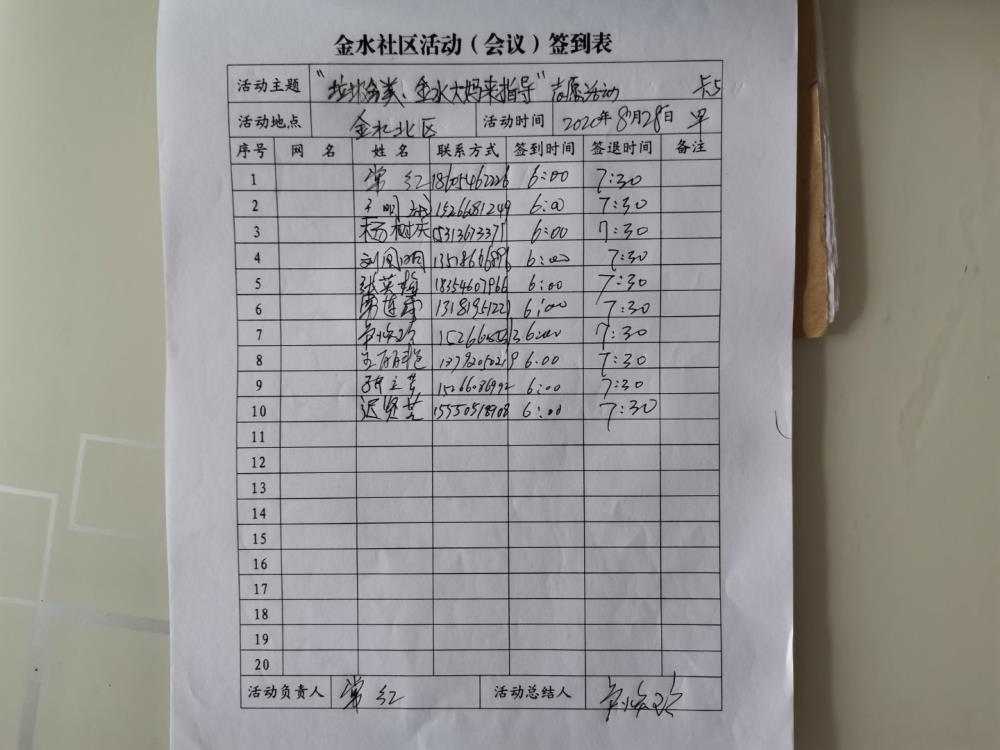 金水社区活动（会议）签到表
活动主题 “垃圾分类、金水大妈来指导”志愿活动 卡5
活动地点 金水北区 活动时间 2020年8月28日 早
序号 网名 姓名 联系方式 签到时间 签退时间 备注
1 常红 18605462226 6:00 7:30
2 15266681249 6:00 7:30
3 杨树庆 6:00 7:30
4 刘凤娟 6:00 7:30
5 张英梅 18354607966 6:00 7:30
6 13181951221 6:00 7:30
7 6:00 7:30
8 6.00 7:30
9 15266086992 6:00 7:30
10 迟贤芝 15550518908 6:00 7:30
11
12
13
14
15
16
17
18
19
20
活动负责人 常红 活动总结人